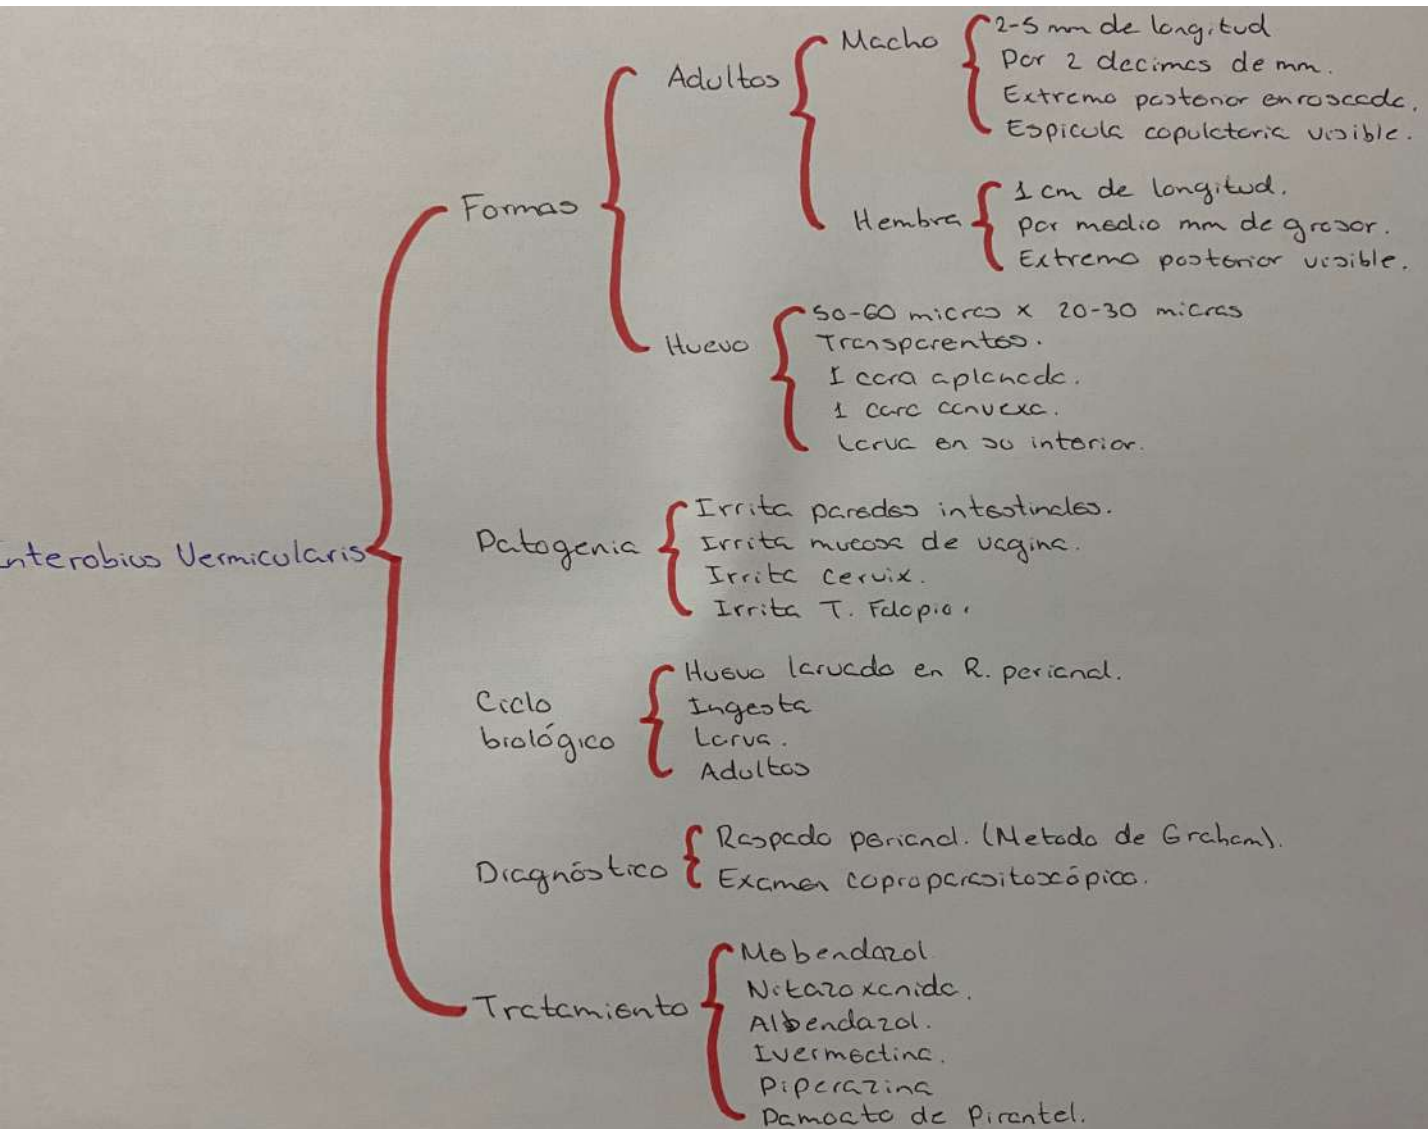 Enterobius Vermicularis
Formas
Adultos
Macho
2-5 mm de longitud
Por 2 decimas de mm.
Extremo posterior enroscada.
Espicula copulatoria visible.
Hembra
1 cm de longitud.
por medio mm de grosor.
Extremo posterior visible.
Huevo
50-60 micras x 20-30 micras
Transparentes.
1 cara aplanada.
1 cara convexa.
Larva en su interior.
Patogenia
Irrita paredes intestinales.
Irrita mucosa de vagina.
Irrita cervix.
Irrita T. Falopio.
Ciclo
biológico
Huevo larvado en R. perianal.
Ingesta
Larva.
Adultos
Diagnóstico
Raspado perianal. (Metodo de Graham).
Examen coproparasitoscópico.
Tratamiento
Mebendazol
Nitazoxanida.
Albendazol.
Ivermectina.
Piperazina
Pamoato de Pirantel.